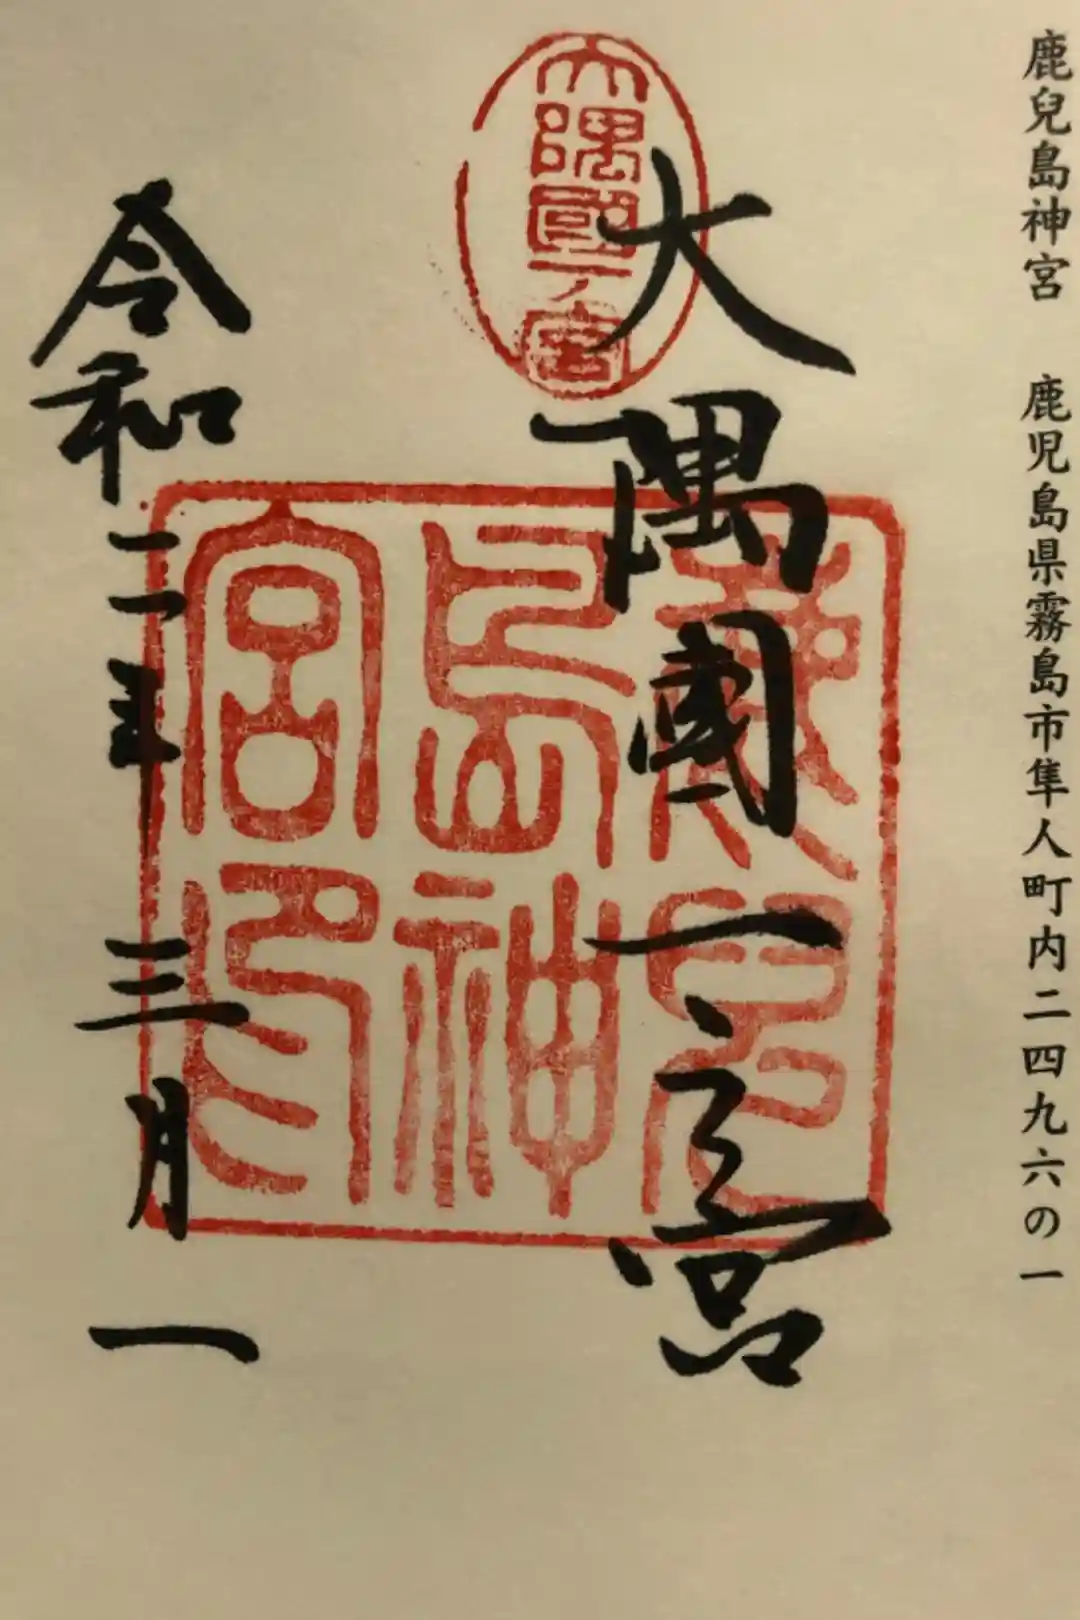 鹿兒島神宮　鹿児島県霧島市隼人町内二四九六の一
大隅國一宮
大隅國一之宮
鹿兒島神宮印
令和二年三月一